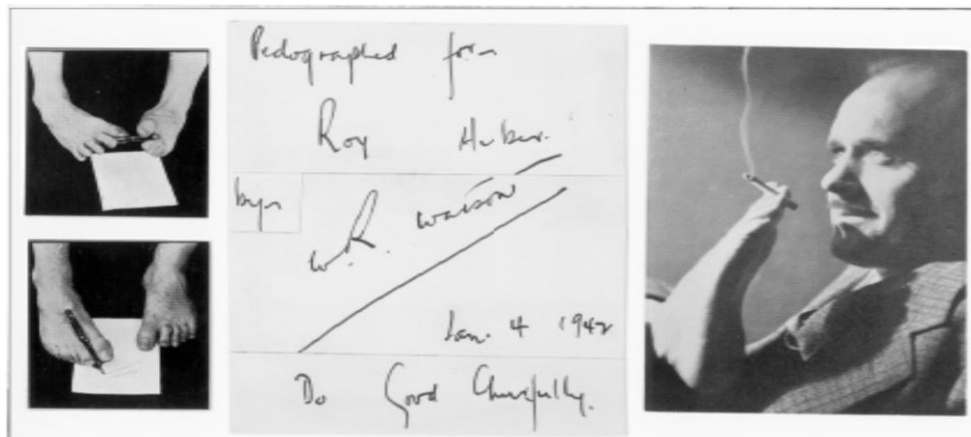 Pedographed for
Roy Huber.
by
W.R. Watson
Jan. 4 1942
Do Good Cheerfully.